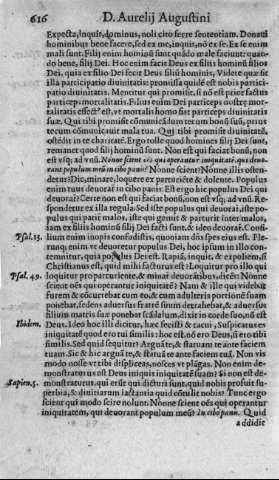 616 D. Aurelij Augustini
Expecta, inquit, dominus, noli cito ferre sententiam. Donaui
hominibus bene facere, sed ex me, inquit, nō ex se. Ex se enim
mali sunt. Filij enim hominū sunt quādo male faciunt: quan-
do bene, filij Dei. Hoc enim facit Deus ex filijs hominū filios
Dei, quia ex filio Dei fecit Deus filiū hominis. Videte quæ sit
illa participatio diuinitatis: promissa quidē est nobis partici-
patio diuinitatis. Mentitur qui promisit, si nō est prior factus
particeps mortalitatis. Filius enim Dei particeps nostræ mor-
talitatis effect⁹ est, vt mortalis homo fiat particeps diuinitatis
suæ. Qui tibi promisit cōmunicādum tecum bonū suū, prius
tecum cōmunicauit malū tuū. Qui tibi promisit diuinitatē,
ostēdit in te charitatē. Ergo tolle quod homines filij Dei sunt,
remanet quod filij hominū sunt. Non est qui faciat bonū, non
est vsq; ad vnū. Nónne scient oēs qui operantur iniquitatē, qui deuo-
rant populum meū in cibo panis? Nónne scient? Nónne illis osten-
detur? Dic, minare, loquere ex parturiente & dolente. Populus
enim tuus deuorat in cibo panis. Est ergo hic populus Dei qui
deuoratur? Certe non est qui faciat bonū, non est vsq; ad vnū. Re-
spondetur ex illa regula. Sed iste populus qui deuorat, iste po-
pulus qui patit malos, iste qui gemit & parturit inter malos,
iam ex filijs hominū filij Dei facti sunt, & ideo deuorāt. Consi-
Psal. 13. lium enim inopis confudistis, quoniam dñs spes eius est. Ple-
runque enim vt deuoretur populus Dei, hoc ipsum in illo con-
temnitur, quia populus Dei est. Rapiā, inquit, & expoliem, si
Christianus est, quid mihi facturus est? Loquitur pro illo qui
Psal. 49. loquitur pro parturiente, & minat deuorātibus, dicēs: Nónne
scient oēs qui operantur iniquitatē? Nam & ille qui videbat
furem & cōcurrebat cum eo, & cum adulteris portionē suam
ponebat, sedens aduersus fratrē suum detrahebat, & aduersus
filium matris suæ ponebat scādalum, dixit in corde suo, nō est
Ibidem. Deus. Ideo hoc illi dicitur, hæc fecisti & tacui. Suspicatus es
iniquitatē quod ero tui similis: hoc est, nō ero Deus, si ero tibi
similis. Sed quid sequitur? Arguā te, & statuam te ante faciem
tuam. Sic & hic arguā te, & statuā te ante faciem tuā. Non vis
modo nosse vt tibi displiceas, nosces vt plāgas. Non enim de-
monstraturus est Deus iniquis iniquitatē suam? Si non est de-
Sapien. 5. monstraturus, qui erūt qui dicturi sunt, quid nobis profuit su-
perbia, & diuitiarum iactantia quid cōtulit nobis? Tunc ergo
scient qui modo scire nolunt. Nónne scient oēs qui operantur
iniquitatem, qui deuorant populum meū in cibo panis. Quid
addidit